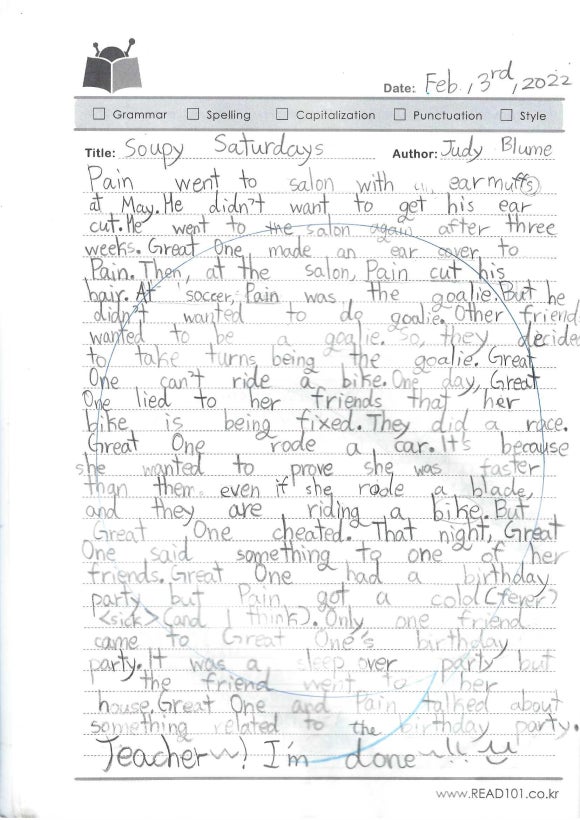 Date: Feb., 3rd, 2022
Grammar Spelling Capitalization Punctuation Style
Title: Soupy Saturdays Author: Judy Blume
Pain went to salon with earmuffs
at May. He didn't want to get his ear
cut. He went to the salon again after three
weeks. Great One made an ear cover to
Pain. Then, at the salon, Pain cut his
hair. At soccer, Pain was the goalie. But he
didn't wanted to do goalie. Other friend
wanted to be a goalie. So, they decided
to take turns being the goalie. Great
One can't ride a bike. One day, Great
One lied to her friends that her
bike is being fixed. They did a race.
Great One rode a car. It's because
she wanted to prove she was faster
than them. even if she rode a blade,
and they are riding a bike. But
Great One cheated. That night, Great
One said something to one of her
friends. Great One had a birthday
party but Pain got a cold (fever)
<sick> (and I think). Only one friend
came to Great One's birthday
party. It was a sleep over party but
the friend went to her
house. Great One and Pain talked about
something related to the birthday party.
Teacher~! I'm done~!!
www.READ101.co.kr